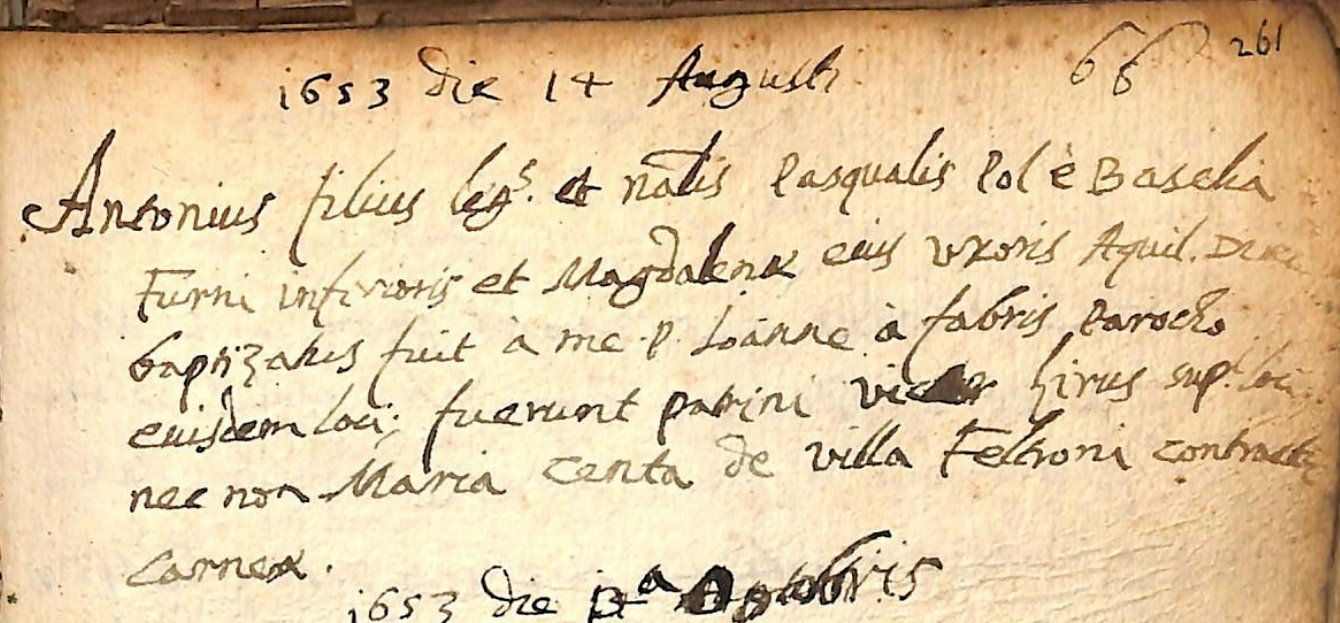 1653 die 14 Augusti 66 261
Antonius filius legs. et natlis Pasqualis Pol è Baselia
Furni inferioris et Magdalenæ eius uxoris Aquil. Diœc
baptizatus fuit à me P. Ioanne à fabris Parocho
eiusdem loci; fuerunt patrini hirus sup.
nec non Maria Centa de villa Feltroni contractæ
Carneæ.
1653 die